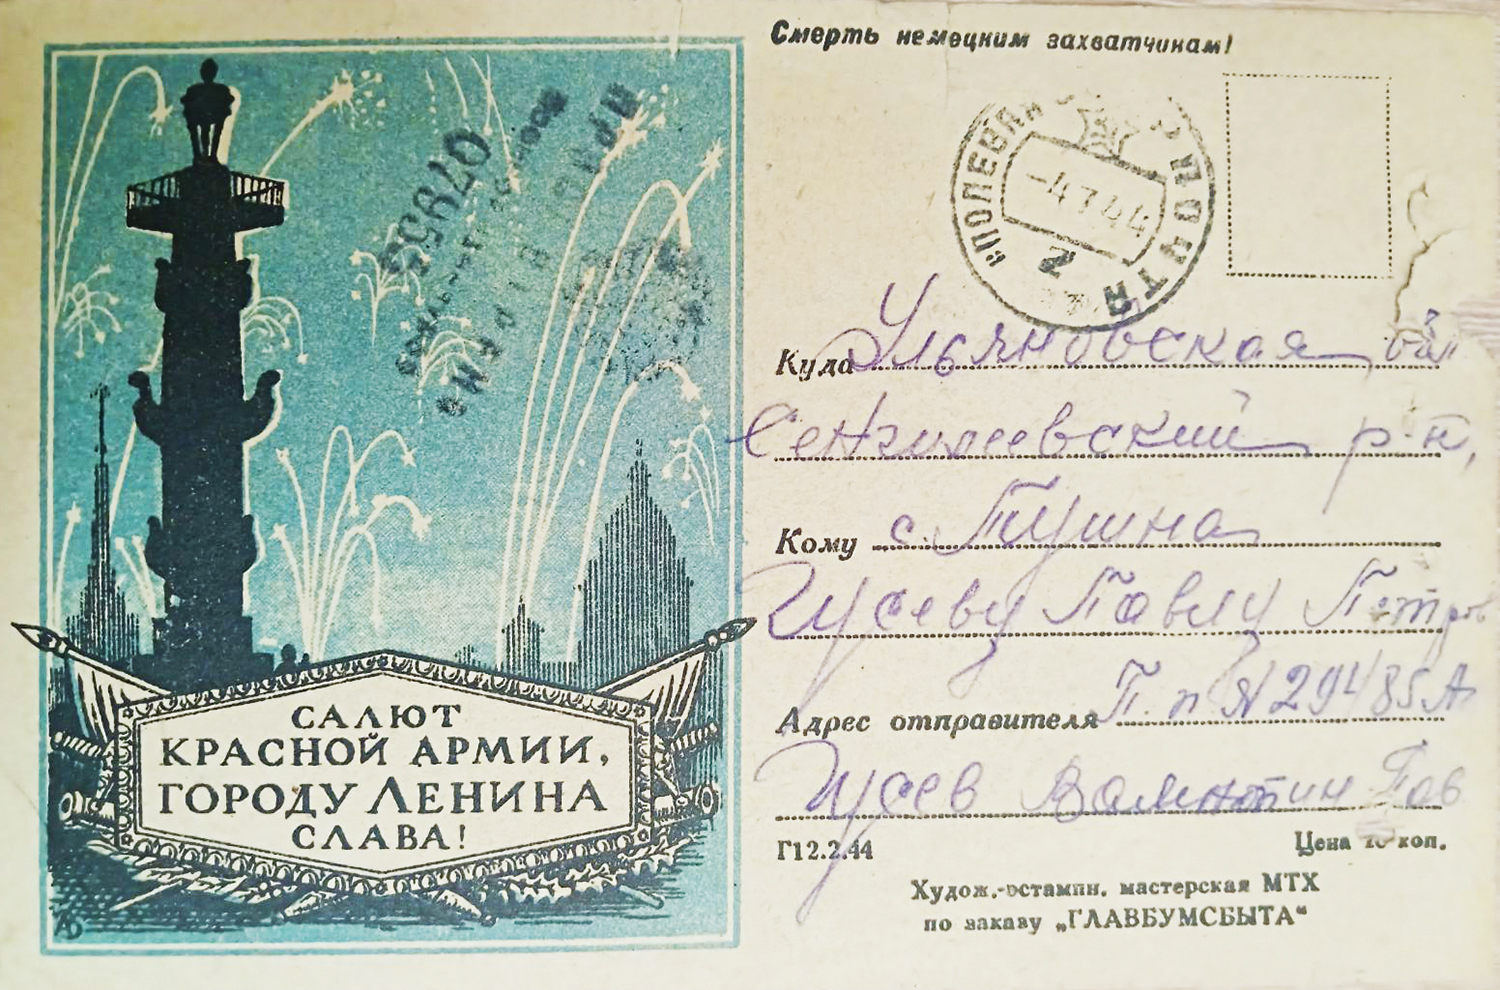 Смерть немецким захватчикам!
ПОЛЕВАЯ ПОЧТА
-4 7 44
2
07955
Куда Ульяновская
Сенгилеевский р-н,
Кому с. Тушна
Гусеву Павлу Петр
Адрес отправителя П. п N 29485 А
Гусев Валентин Пав
САЛЮТ
КРАСНОЙ АРМИИ,
ГОРОДУ ЛЕНИНА
СЛАВА!
Г12.2.44 Цена коп.
Худож.-эстампн. мастерская МТХ
по заказу „ГЛАВБУМСБЫТА“